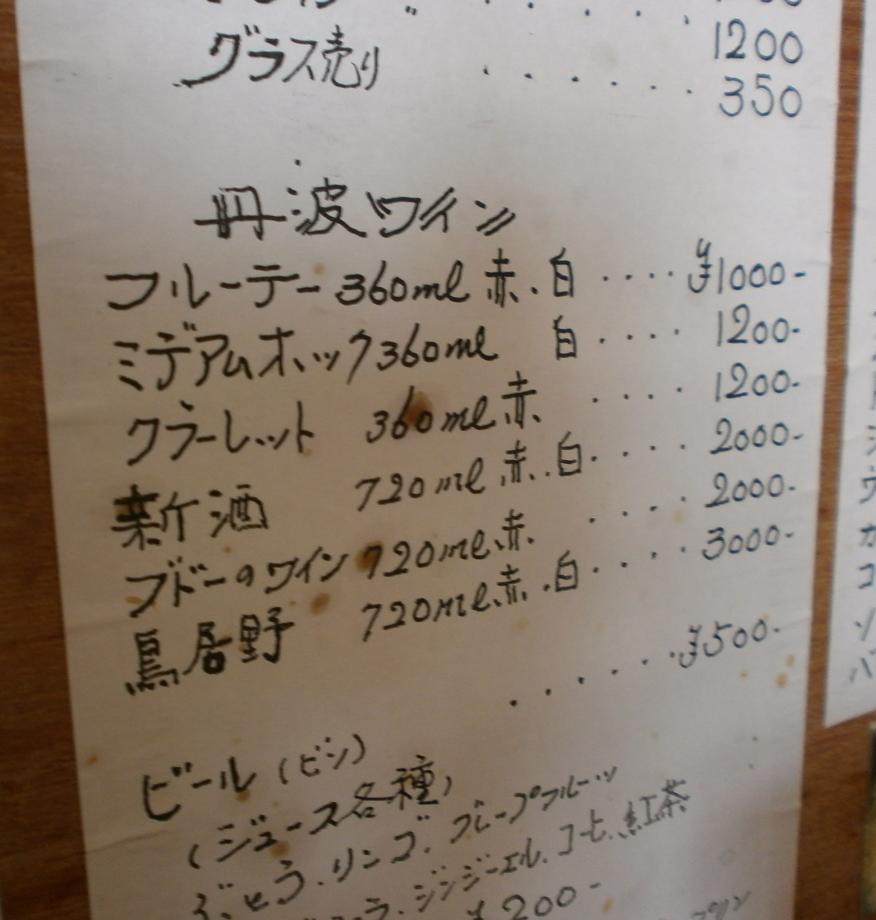 1200
グラス売り ..... 350
丹波ワイン
フルーテー 360ml 赤.白 .... ¥1000-
ミデアムホック 360ml 白 .... 1200-
クラーレット 360ml 赤 .... 1200-
新酒 720ml 赤.白 .... 2000-
ブドーのワイン 720ml 赤 .... 2000-
鳥居野 720ml 赤.白 .... 3000-
ビール(ビン) ...... ¥500-
(ジュース各種)
ぶどう.リンゴ.グレープフルーツ
ラ.ジンジーエル.コーヒ.紅茶
¥200-